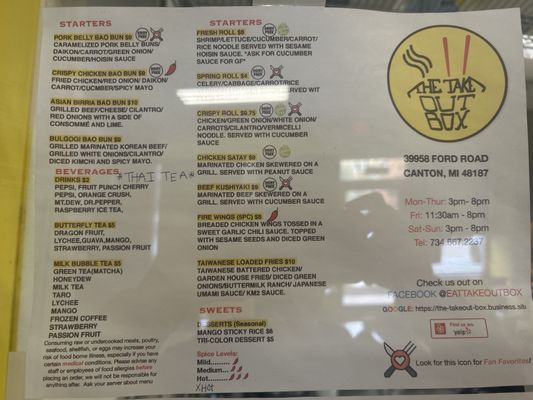 STARTERS
PORK BELLY BAO BUN $9
CARAMELIZED PORK BELLY BUNS/
DAIKON/CARROT/GREEN ONION/
CUCUMBER/HOISIN SAUCE
CRISPY CHICKEN BAO BUN $9
FRIED CHICKEN/RED ONION/ DAIKON/
CARROT/CUCMBER/SPICY MAYO
ASIAN BIRRIA BAO BUN $10
GRILLED BEEF/CHEESE/ CILANTRO/
RED ONIONS WITH A SIDE OF
CONSOMMÉ AND LIME.
BULGOGI BAO BUN $9
GRILLED MARINATED KOREAN BEEF/
GRILLED WHITE ONIONS/CILANTRO/
DICED KIMCHI AND SPICY MAYO.
BEVERAGES
*THAI TEA*
DRINKS $2
PEPSI, FRUIT PUNCH CHERRY
PEPSI, ORANGE CRUSH,
MT.DEW, DR.PEPPER,
RASPBERRY ICE TEA,
BUTTERFLY TEA $5
DRAGON FRUIT,
LYCHEE,GUAVA,MANGO,
STRAWBERRY, PASSION FRUIT
MILK BUBBLE TEA $5
GREEN TEA(MATCHA)
HONEYDEW
MILK TEA
TARO
LYCHEE
MANGO
FROZEN COFFEE
STRAWBERRY
PASSION FRUIT
Consuming raw or undercooked meats, poultry,
seafood, shellfish, or eggs may increase your
risk of food borne illness, especially if you have
certain medical conditions. Please advise any
staff or employees of food allergies before
placing an order, we will not be responsible for
anything after. Ask your server about menu
STARTERS
FRESH ROLL $8
SHRIMP/LETTUCE/CUCUMBER/CARROT/
RICE NOODLE SERVED WITH SESAME
HOISIN SAUCE. *ASK FOR CUCUMBER
SAUCE FOR GF*
SPRING ROLL $4
CELERY/CABBAGE/CARROT/RICE
SERVED WIT
CRISPY ROLL $6.75
CHICKEN/GREEN ONION/WHITE ONION/
CARROTS/CILANTRO/VERMICELLI
NOODLE. SERVED WITH CUCUMBER
SAUCE.
CHICKEN SATAY $9
MARINATED CHICKEN SKEWERED ON A
GRILL. SERVED WITH PEANUT SAUCE
BEEF KUSHIYAKI $9
MARINATED BEEF SKEWERED ON A
GRILL. SERVED WITH CUCUMBER SAUCE
FIRE WINGS (5PC) $8
BREADED CHICKEN WINGS TOSSED IN A
SWEET GARLIC CHILI SAUCE. TOPPED
WITH SESAME SEEDS AND DICED GREEN
ONION
TAIWANESE LOADED FRIES $10
TAIWANESE BATTERED CHICKEN/
GARDEN HOUSE FRIES/ DICED GREEN
ONIONS/BUTTERMILK RANCH/ JAPANESE
UMAMI SAUCE/ KM2 SAUCE.
SWEETS
DESSERTS (Seasonal)
MANGO STICKY RICE $6
TRI-COLOR DESSERT $5
Spice Levels:
Mild
Medium
Hot
XHot
THE TAKE
OUT
BOX
39958 FORD ROAD
CANTON, MI 48187
Mon-Thur: 3pm- 8pm
Fri: 11:30am - 9pm
Sat-Sun: 3pm - 8pm
Tel: 734.667.2237
Check us out on
FACEBOOK @EATTAKEOUTBOX
GOOGLE: https://the-takeout-box.business.sit
Find us on
yelp
Look for this icon for Fan Favorites!